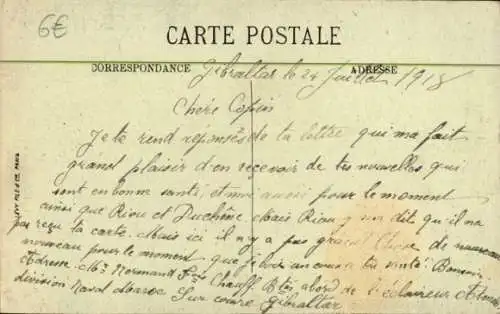 6€
CARTE POSTALE
CORRESPONDANCE
ADRESSE
Gibraltar le 24 Juillet 1918
Chère Copin
Je te rend reponses de ta lettre qui ma fait
grand plaisir d'en recevoir de tes nouvelles qui
sont en bonne santé, et moi aussi pour le moment
ainsi que Riou et Duchêne. Mais Riou dit qu'il n'a
pas reçu ta carte. Mais ici il n'y a pas grand chose de nouveau
nouveau pour le moment que je bois un coup a ta santé. Bonsoir
Adresse. Mr Normand Chauff. Bts abord de l'éclaireur
division Naval Maroc Sur course Gibraltar